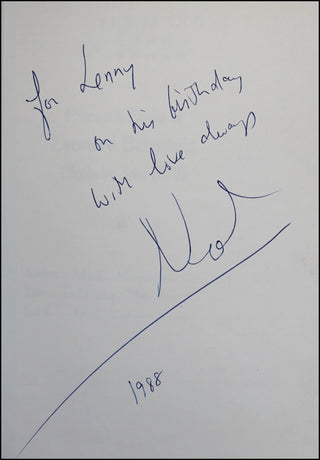 for Lenny
on his birthday
with love always
1988